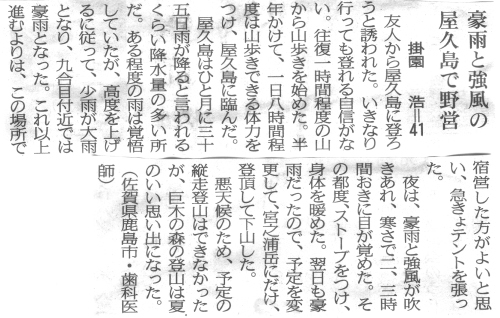 豪雨と強風の
屋久島で野営
掛園 浩＝41
友人から屋久島に登ろ
うと誘われた。いきなり
行っても登れる自信がな
い。往復一時間程度の山
から山歩きを始めた。半
年かけて、一日八時間程
度は山歩きできる体力を
つけ、屋久島に臨んだ。
屋久島はひと月に三十
五日雨が降ると言われる
くらい降水量の多い所
だ。ある程度の雨は覚悟
していたが、高度を上げ
るに従って、少雨が大雨
となり、九合目付近では
豪雨となった。これ以上
進むよりは、この場所で
宿営した方がよいと思
い、急きょテントを張っ
た。
夜は、豪雨と強風が吹
きあれ、寒さで二、三時
間おきに目が覚めた。そ
の都度、ストーブをつけ、
身体を暖めた。翌日も豪
雨だったので、予定を変
更して、宮之浦岳にだけ、
登頂して下山した。
悪天候のため、予定の
縦走登山はできなかった
が、巨木の森の登山は夏
のいい思い出になった。
（佐賀県鹿島市・歯科医
師）